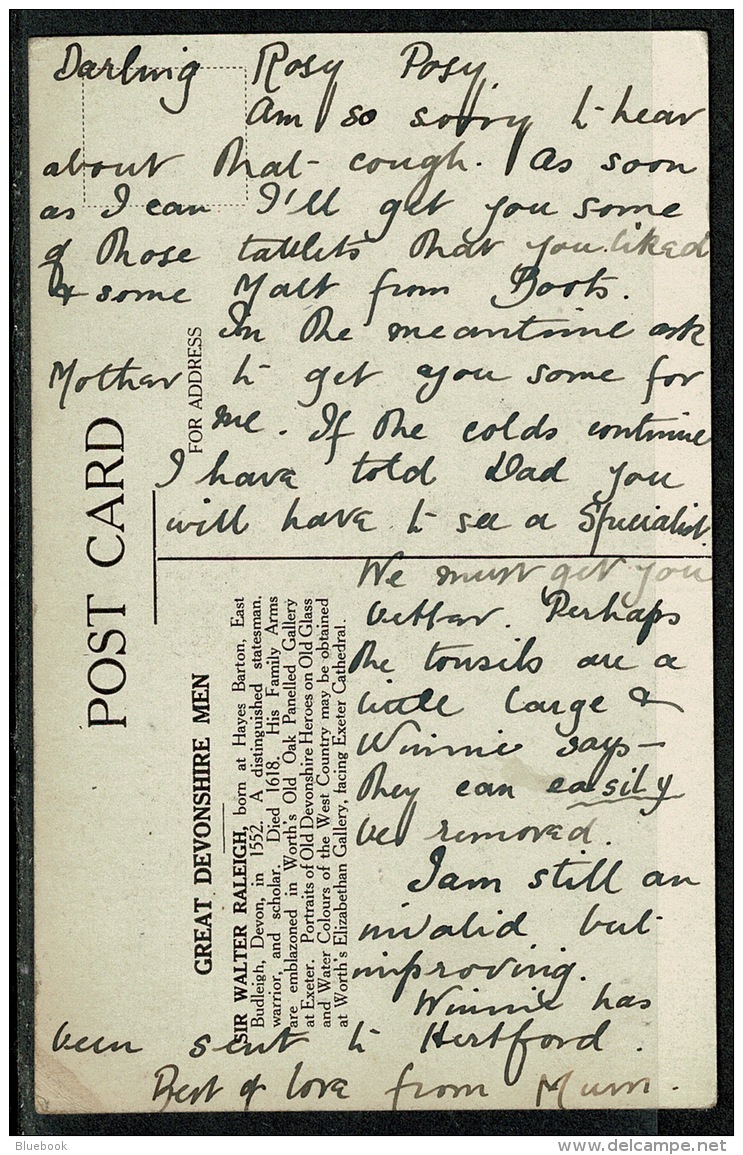 Darling Rosy Posy,
Am so sorry to hear
about that cough. As soon
as I can I'll get you some
of those tablets that you liked
& some Malt from Boots.
In the meantime ask
Mother to get you some for
me. If the colds continue
I have told Dad you
will have to see a Specialist.
We must get you
better. Perhaps
the tonsils are a
little large &
Winnie says
they can easily
be removed.
I am still an
invalid but
improving.
Winnie has
been sent to Hertford.
Best of love from Mum.
POST CARD
FOR ADDRESS
GREAT DEVONSHIRE MEN
SIR WALTER RALEIGH, born at Hayes Barton, East
Budleigh, Devon, in 1552. A distinguished statesman,
warrior, and scholar. Died 1618. His Family Arms
are emblazoned in Worth's Old Oak Panelled Gallery
at Exeter. Portraits of Old Devonshire Heroes on Old Glass
and Water Colours of the West Country may be obtained
at Worth's Elizabethan Gallery, facing Exeter Cathedral.
Bluebook
delcampe.net